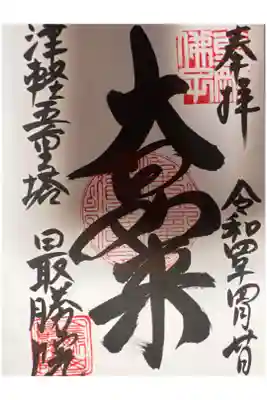 奉拝
令和四年
大日如来
津軽五重塔
最勝院